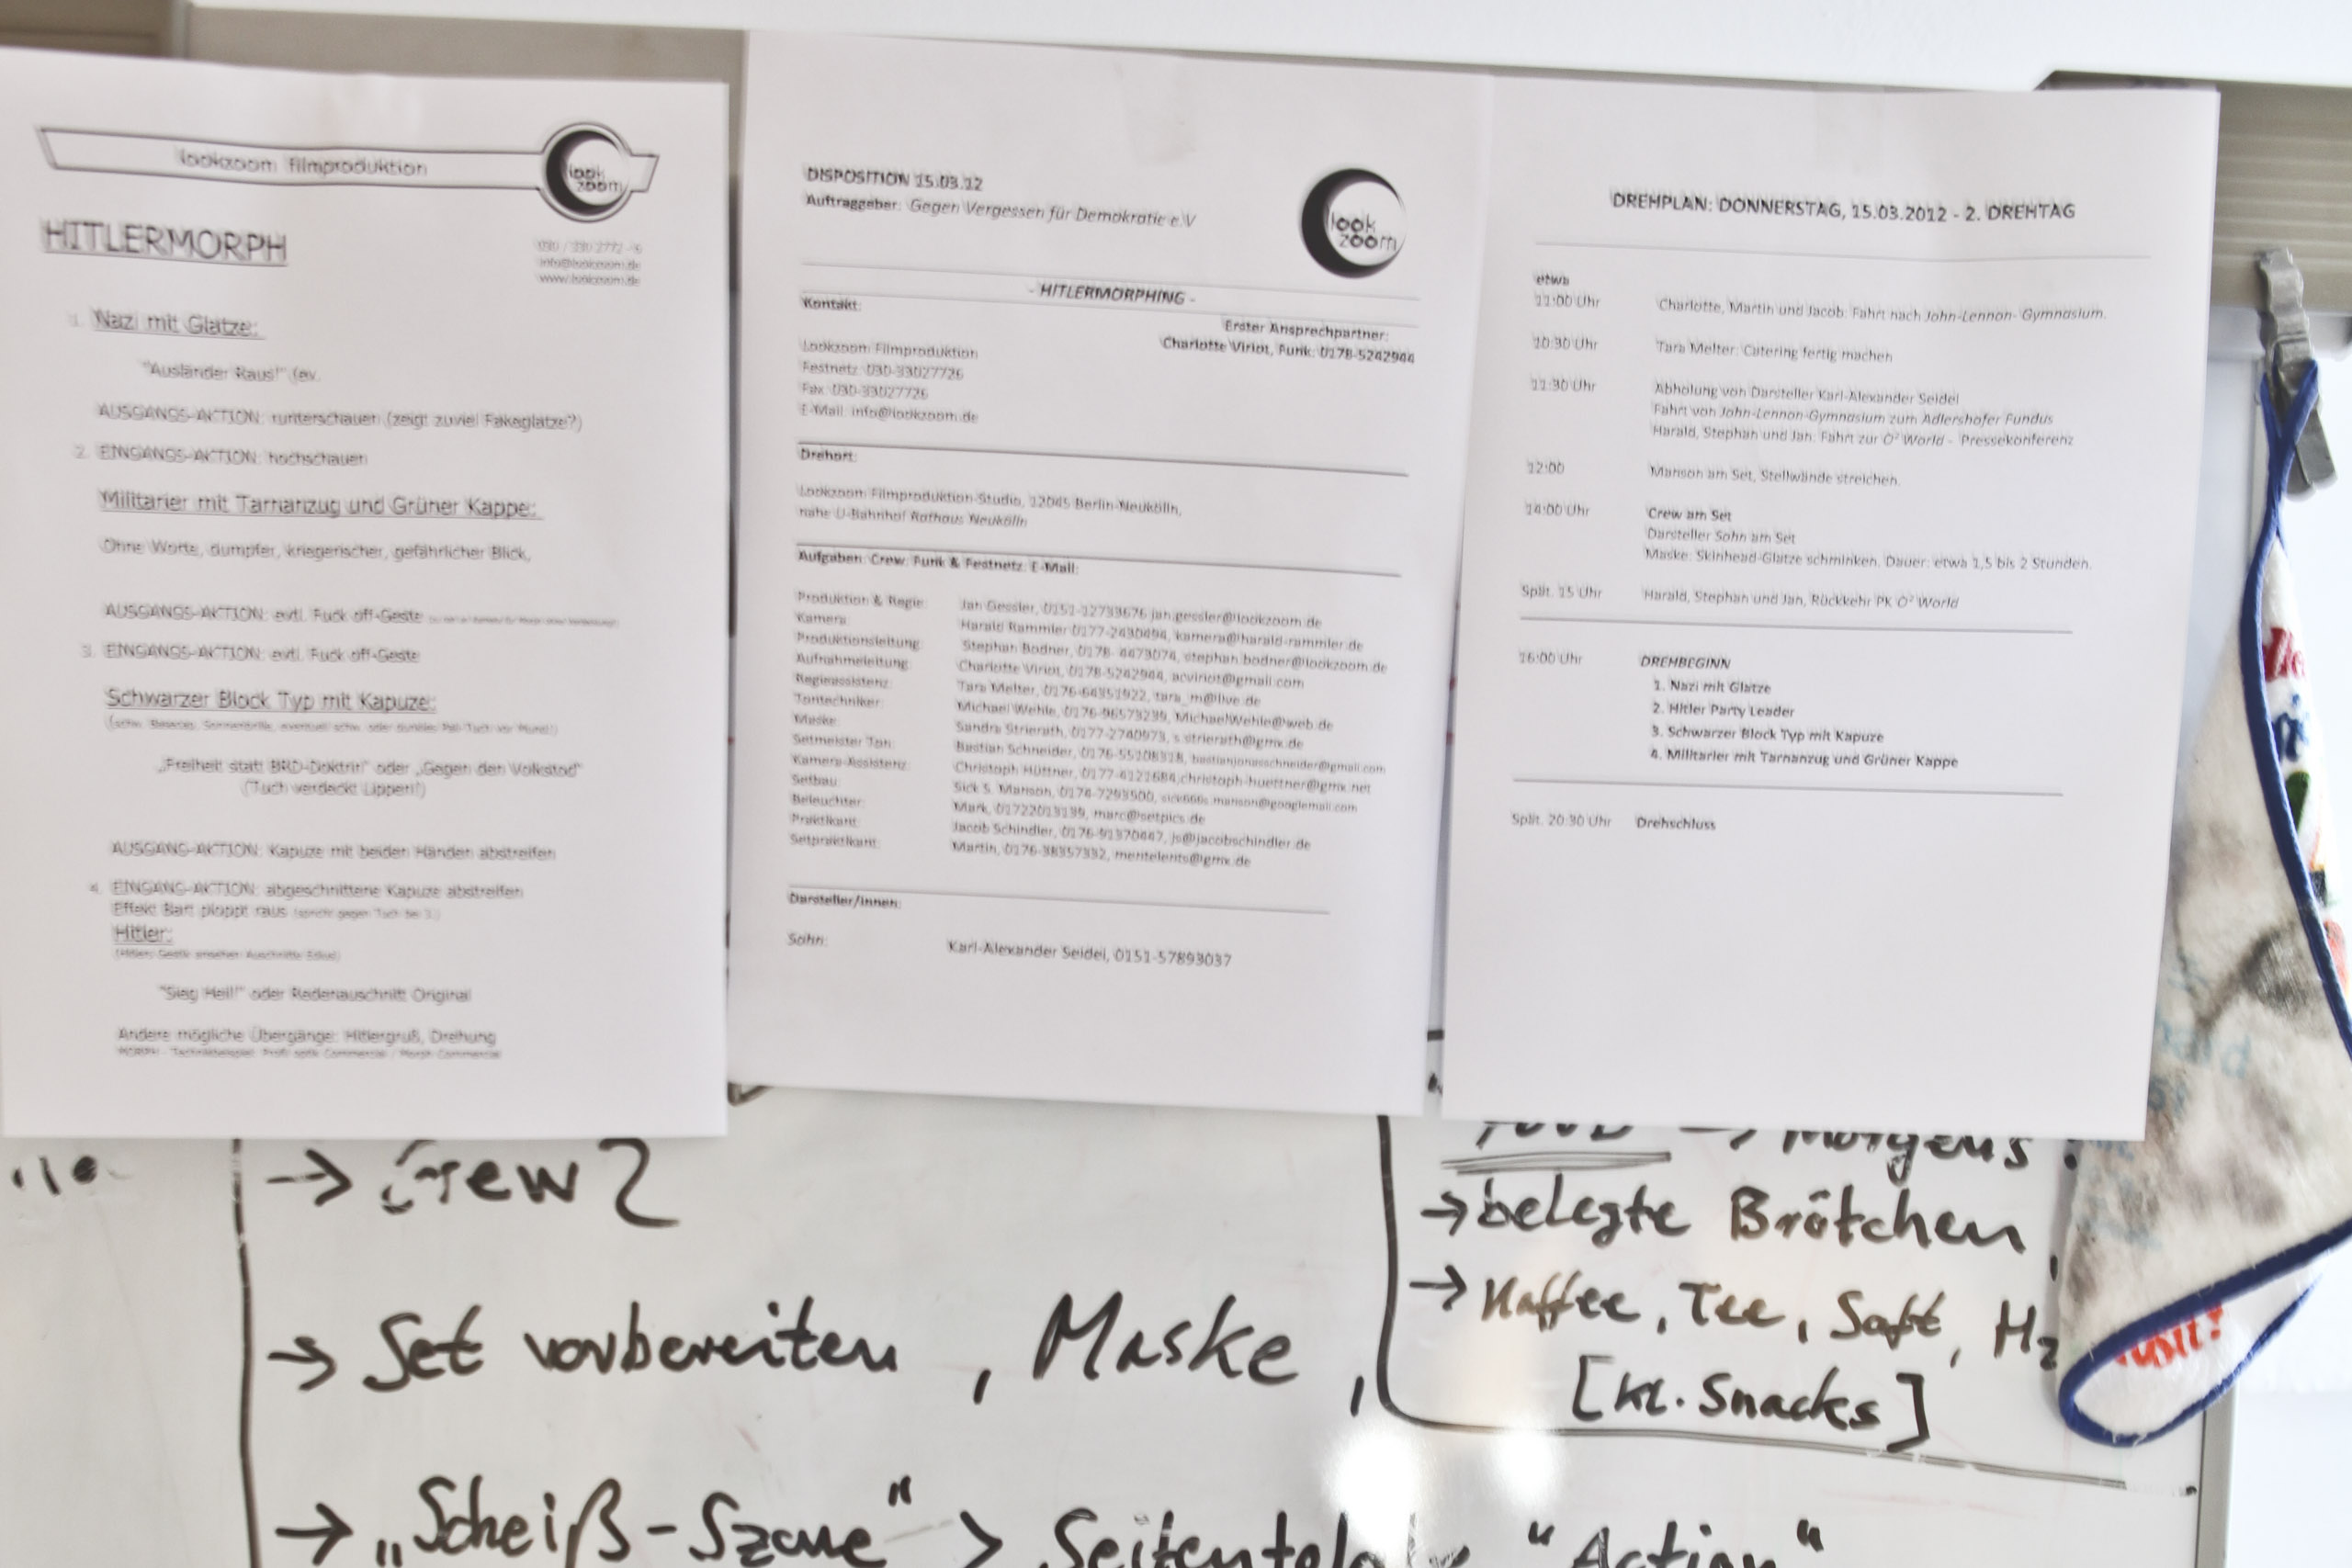 lookzoom filmproduktion
look
zoom
HITLERMORPH
info@lookzoom.de
www.lookzoom.de
1. Nazi mit Glatze:
"Ausländer Raus!" (ev.
AUSGANGS-AKTION: runterschauen (zeigt zuviel Fakeglatze?)
2. EINGANGS-AKTION: hochschauen
Militarier mit Tarnanzug und Grüner Kappe:
Ohne Worte, dumpfer, kriegerischer, gefährlicher Blick,
AUSGANGS-AKTION: evtl. Fuck off-Geste
3. EINGANGS-AKTION: evtl. Fuck off-Geste
Schwarzer Block Typ mit Kapuze:
„Freiheit statt BRD-Doktrin" oder „Gegen den Volkstod"
(Tuch verdeckt Lippen!)
AUSGANG-AKTION: Kapuze mit beiden Händen abstreifen
4. EINGANG-AKTION: abgeschnittene Kapuze abstreifen
Effekt Bart ploppt raus (spricht gegen Tuch bei 3.)
Hitler:
"Sieg Heil!" oder Redenauschnitt Original
Andere mögliche Übergänge: Hitlergruß, Drehung
DISPOSITION 15.03.12
Auftraggeber: Gegen Vergessen für Demokratie e.V
look
zoom
- HITLERMORPHING -
Kontakt:
Erster Ansprechpartner:
Charlotte Viriot, Funk: 0178-5242944
Lookzoom Filmproduktion
Festnetz: 030-33027726
Fax: 030-33027726
E-Mail: info@lookzoom.de
Drehort:
Lookzoom Filmproduktion-Studio, 12045 Berlin-Neukölln,
nahe U-Bahnhof Rathaus Neukölln
Aufgaben: Crew: Funk & Festnetz: E-Mail:
Produktion & Regie: Jan Gessler, 0151-12733676 jan.gessler@lookzoom.de
Kamera: Harald Rammler 0177-2430494, kamera@harald-rammler.de
Produktionsleitung: Stephan Bodner, 0178- 4473074, stephan.bodner@lookzoom.de
Aufnahmeleitung: Charlotte Viriot, 0178-5242944, acviriot@gmail.com
Regieassistenz: Tara Melter, 0176-64351922, tara_m@live.de
Tontechniker: Michael Wehle, 0176-96573239, MichaelWehle@web.de
Maske: Sandra Strierath, 0177-2740973, s.strierath@gmx.de
Setmeister Ton: Bastian Schneider, 0176-55108318, bastianjonasschneider@gmail.com
Kamera-Assistenz: Christoph Hüttner, 0177-4121684,christoph-huettner@gmx.net
Setbau: Sick S. Manson, 0174-7293500, sick666s.manson@googlemail.com
Beleuchter: Mark, 01722013139, marc@setpics.de
Praktikant: Jacob Schindler, 0176-91370447, js@jacobschindler.de
Setpraktikant: Martin, 0176-38357332, mentelents@gmx.de
Darsteller/innen:
Sohn: Karl-Alexander Seidel, 0151-57893037
DREHPLAN: DONNERSTAG, 15.03.2012 - 2. DREHTAG
etwa
11:00 Uhr Charlotte, Martin und Jacob: Fahrt nach John-Lennon- Gymnasium.
10:30 Uhr Tara Melter: Catering fertig machen
11:30 Uhr Abholung von Darsteller Karl-Alexander Seidel
Fahrt von John-Lennon-Gymnasium zum Adlershofer Fundus
Harald, Stephan und Jan: Fahrt zur O² World - Pressekonferenz
12:00 Manson am Set, Stellwände streichen.
14:00 Uhr Crew am Set
Darsteller Sohn am Set
Maske: Skinhead-Glatze schminken. Dauer: etwa 1,5 bis 2 Stunden.
Split. 15 Uhr Harald, Stephan und Jan, Rückkehr PK O² World
16:00 Uhr DREHBEGINN
1. Nazi mit Glatze
2. Hitler Party Leader
3. Schwarzer Block Typ mit Kapuze
4. Militarier mit Tarnanzug und Grüner Kappe
Split. 20:30 Uhr Drehschluss
→ Crew
→ Set vorbereiten, Maske,
→ „Scheiß-Szene“ > "Action"
FOOD → Morgens:
→ belegte Brötchen,
→ Kaffee, Tee, Saft, H₂
[Kl. Snacks]